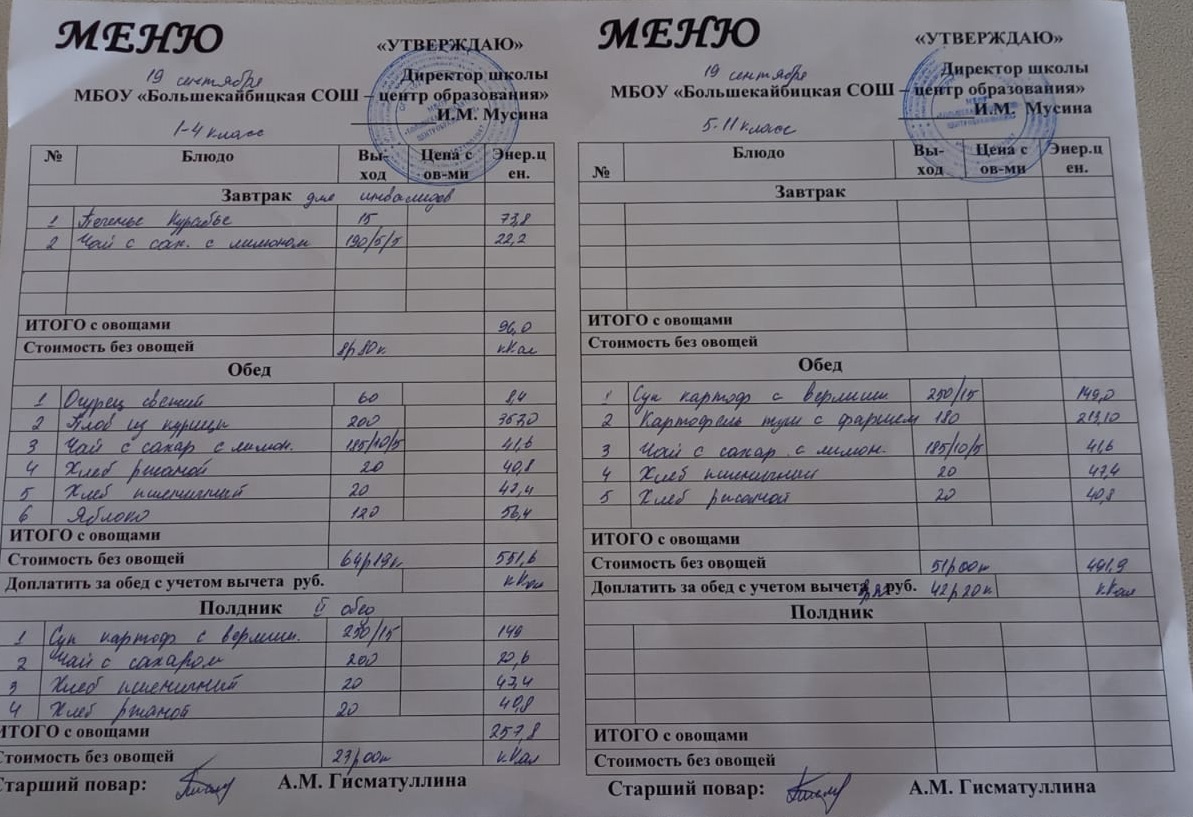 МЕНЮ
«УТВЕРЖДАЮ»
19 сентября
Директор школы
МБОУ «Большекайбицкая СОШ – центр образования»
И.М. Мусина
1-4 класс
№ Блюдо Вы-ход Цена с ов-ми Энер.ц ен.
Завтрак для инвалидов
1 Печенье Курабье 15 73,8
2 Чай с сах. с лимоном 190/5/5 22,2
ИТОГО с овощами 96,0
Стоимость без овощей 8р80к ккал
Обед
1 Огурец свежий 60 8,4
2 Плов из курицы 200
3 Чай с сахар с лимон. 185/10/5 41,6
4 Хлеб ржаной 20 40,8
5 Хлеб пшеничный 20 47,4
6 Яблоко 120 56,4
ИТОГО с овощами
Стоимость без овощей 64р19к 551,6
Доплатить за обед с учетом вычета руб. ккал
Полдник II обед
1 Суп картоф с вермиш. 250/15 149
2 Чай с сахаром 200 20,6
3 Хлеб пшеничный 20 47,4
4 Хлеб ржаной 20 40,8
ИТОГО с овощами 257,8
Стоимость без овощей 27р00к ккал
Старший повар: А.М. Гисматуллина
МЕНЮ
«УТВЕРЖДАЮ»
19 сентября
Директор школы
МБОУ «Большекайбицкая СОШ – центр образования»
И.М. Мусина
5-11 класс
№ Блюдо Вы-ход Цена с ов-ми Энер.ц ен.
Завтрак
ИТОГО с овощами
Стоимость без овощей
Обед
1 Суп картоф с вермиш 250/15 149,0
2 Картофель туш с фаршем 180 213,10
3 Чай с сахар с лимон. 185/10/5 41,6
4 Хлеб пшеничный 20 47,4
5 Хлеб ржаной 20 40,8
ИТОГО с овощами
Стоимость без овощей 51р00к 491,9
Доплатить за обед с учетом вычета руб. 42р20к ккал
Полдник
ИТОГО с овощами
Стоимость без овощей
Старший повар: А.М. Гисматуллина